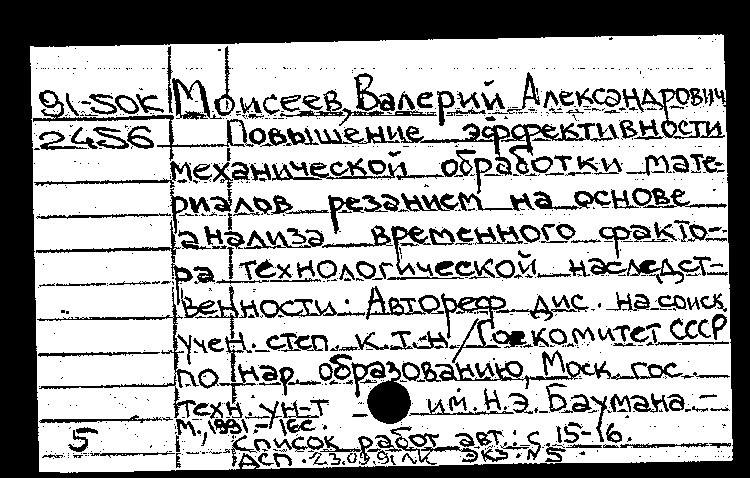 91-50К Моисеев, Валерий Александрович
2456 Повышение эффективности
механической обработки мате-
риалов резанием на основе
анализа временного факто-
ра технологической наследст-
венности: Автореф дис. на соиск
учен. степ. к.т.н. / Госкомитет СССР
по нар. образованию, Моск. гос.
техн. ун-т им. Н.Э. Баумана. –
М., 1991. – 16с.
5 Список работ авт.: с. 15-16.
АСП. 23.09.91 ЛК ЭКЗ. N5.